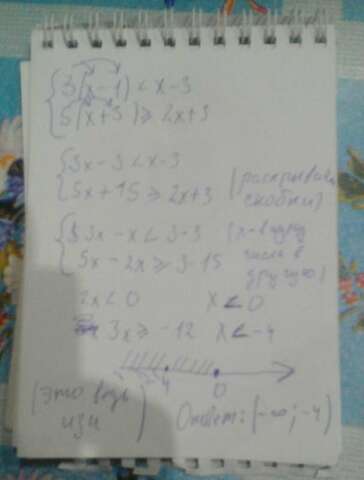 { 3(x-1) < x-3
{ 5(x+3) ≥ 2x+3
{ 3x-3 < x-3
{ 5x+15 ≥ 2x+3 (раскрываем скобки)
{ 3x-x < 3-3 (x-в одну
{ 5x-2x ≥ 3-15 числа в
другую)
2x < 0 x < 0
3x ≥ -12 x < -4
-4 0
(это ведь изи) Ответ: (-∞; -4)